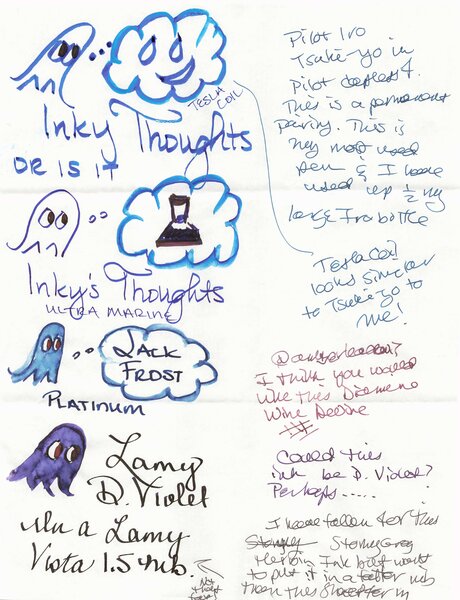 TESLA
COIL
Inky Thoughts
OR IS IT
Inky's Thoughts
ULTRA MARINE
JACK
FROST
PLATINUM
Lamy
D. Violet
in a Lamy
Vista 1.5 nib.
Not
Pilot Iro
Tsuki-yo in
Pilot
This is a permanent
pairing. This is
my most used
pen & I have
used up 1/2 my
large Iro bottle
Tesla Coil
looks similar
to Tsuki-yo to
me!
I think you would
like this Diamine
Wine Devine
Could this
ink be D. Violet?
Perhaps.....
I have fallen for this
Stormy Grey
Herbin Ink but want
to put it in a nib
than this